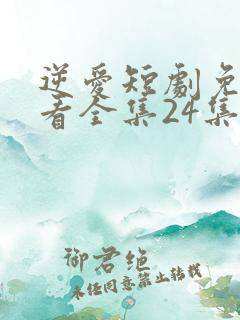 逆爱短劇免
看全集24集
御君绝
未经同意禁止转载